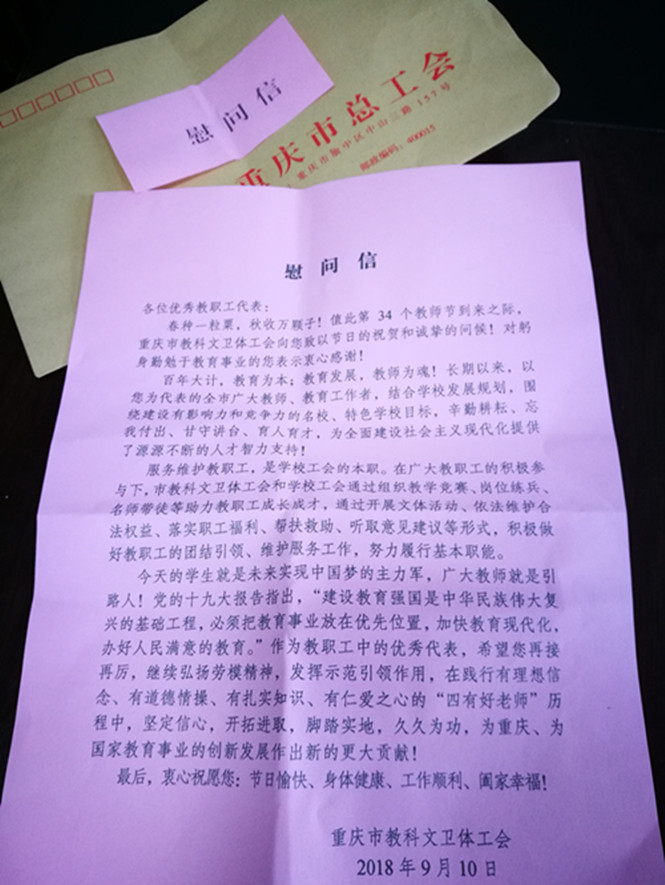 慰问信
重庆市总工会
重庆市渝中区中山三路 157号
邮政编码：400015
慰 问 信
各位优秀教职工代表：
春种一粒粟，秋收万颗子！值此第 34 个教师节到来之际，
重庆市教科文卫体工会向您致以节日的祝贺和诚挚的问候！对躬
身勤勉于教育事业的您表示衷心感谢！
百年大计，教育为本；教育发展，教师为魂！长期以来，以
您为代表的全市广大教师、教育工作者，结合学校发展规划，围
绕建设有影响力和竞争力的名校、特色学校目标，辛勤耕耘、忘
我付出、甘守讲台、育人育才，为全面建设社会主义现代化提供
了源源不断的人才智力支持！
服务维护教职工，是学校工会的本职。在广大教职工的积极参
与下，市教科文卫体工会和学校工会通过组织教学竞赛、岗位练兵、
名师带徒等助力教职工成长成才，通过开展文体活动、依法维护合
法权益、落实职工福利、帮扶救助、听取意见建议等形式，积极做
好教职工的团结引领、维护服务工作，努力履行基本职能。
今天的学生就是未来实现中国梦的主力军，广大教师就是引
路人！党的十九大报告指出，“建设教育强国是中华民族伟大复
兴的基础工程，必须把教育事业放在优先位置，加快教育现代化，
办好人民满意的教育。”作为教职工中的优秀代表，希望您再接
再厉，继续弘扬劳模精神，发挥示范引领作用，在践行有理想信
念、有道德情操、有扎实知识、有仁爱之心的“四有好老师”历
程中，坚定信心，开拓进取，脚踏实地，久久为功，为重庆、为
国家教育事业的创新发展作出新的更大贡献！
最后，衷心祝愿您：节日愉快、身体健康、工作顺利、阖家幸福！
重庆市教科文卫体工会
2018 年 9 月 10 日